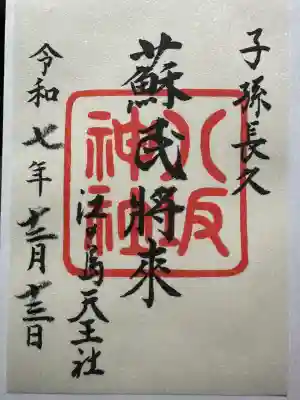 子孫長久
蘇民將來
八坂
神社
江の島天王社
令和七年十二月十三日